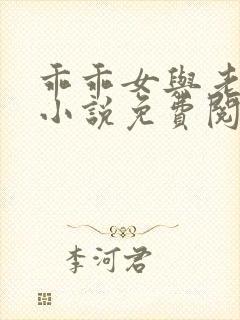 乖乖女與老
小說免費閱
李河君